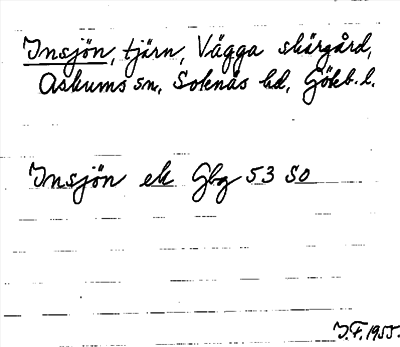 Insjön, tjärn, Vägga skärgård,
Askums sn, Sotenäs hd, Göteb. l.
Insjön ek Gbg 53 SO
J.F. 1955.